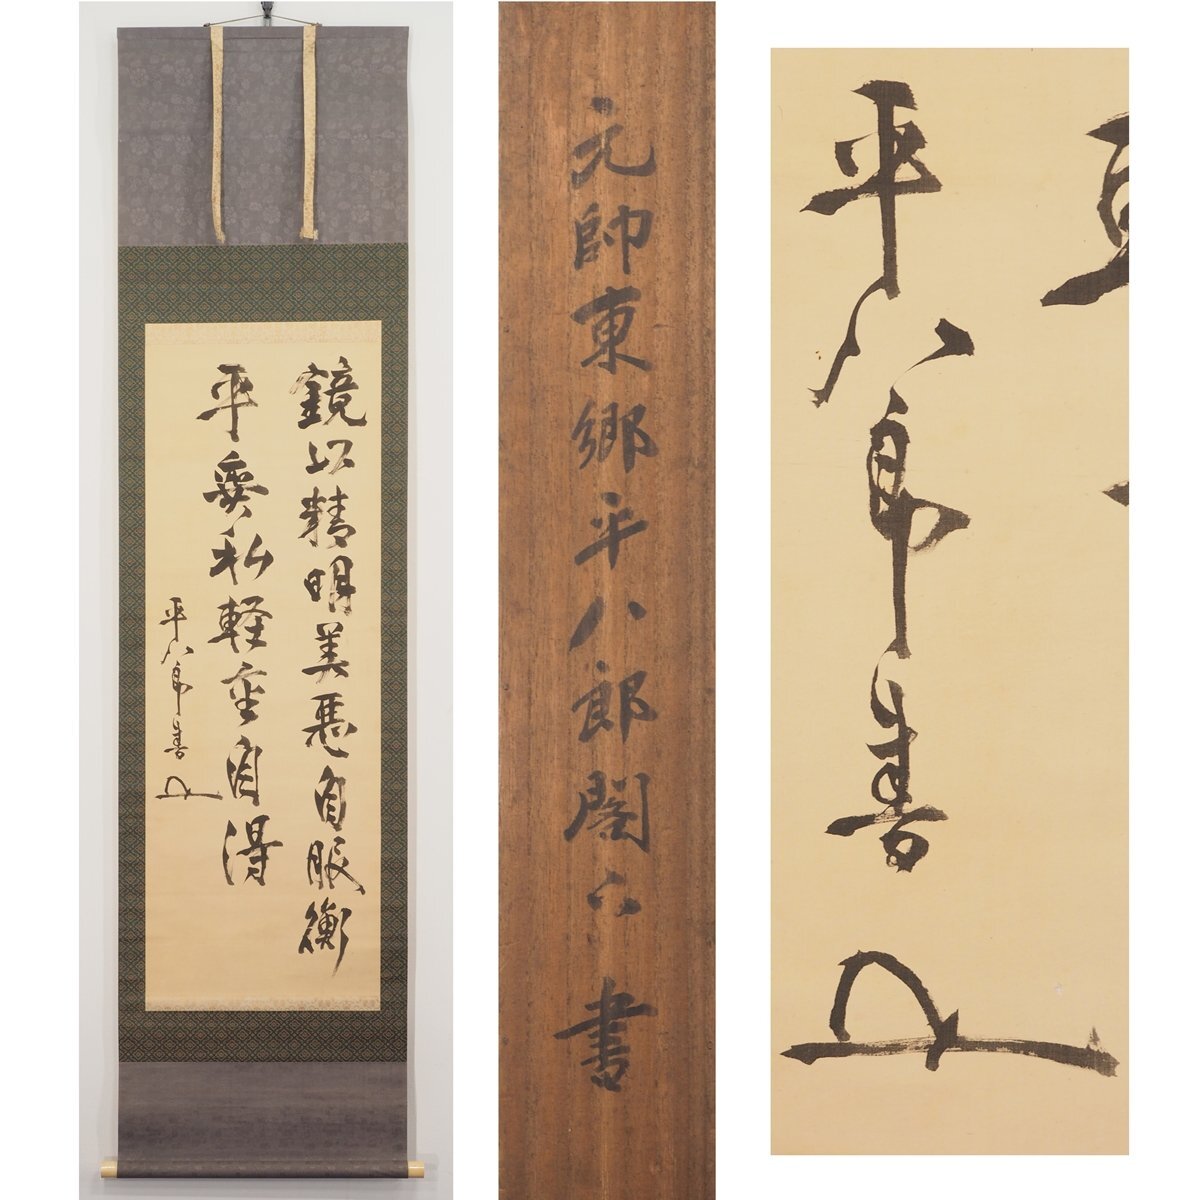 鏡以精明美悪自服衡
平無私軽重自得
平八郎書
元帥東郷平八郎閣下書
平八郎書